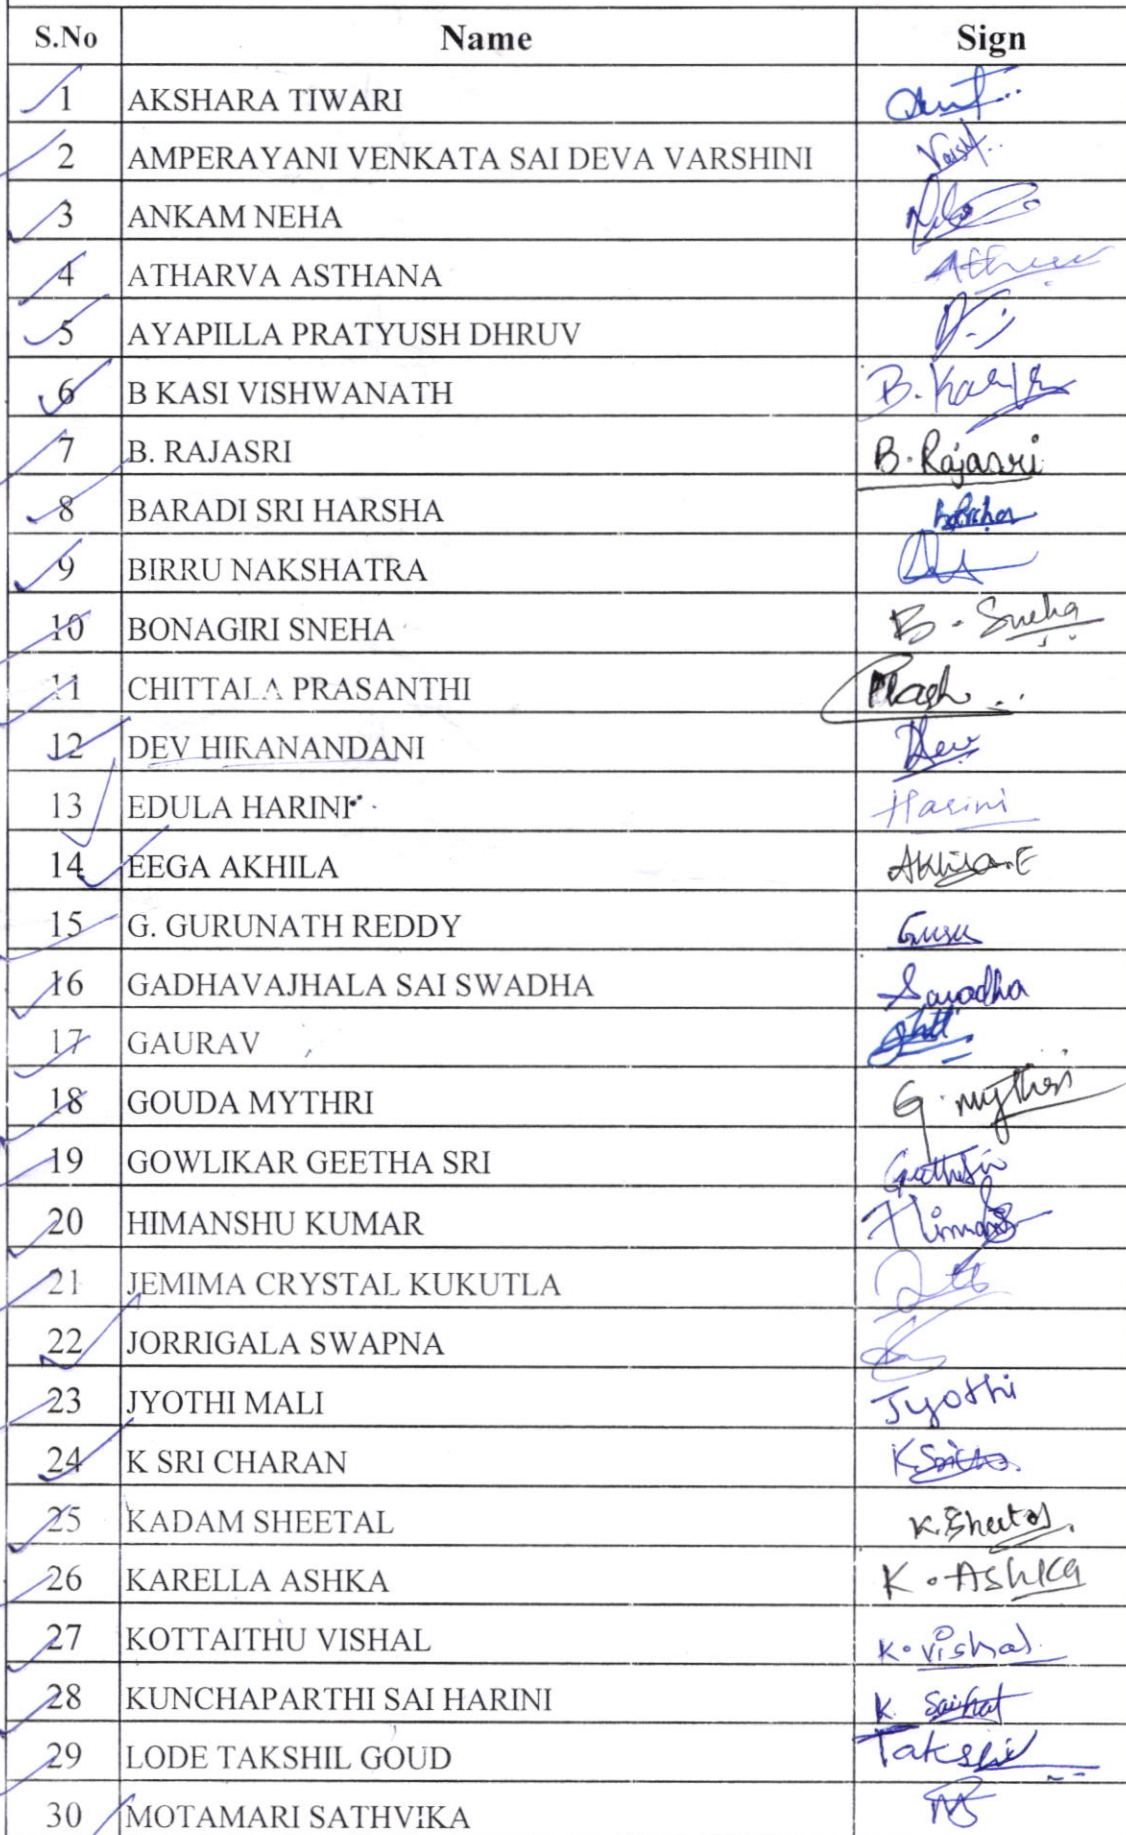 S.No Name Sign
1 AKSHARA TIWARI
2 AMPERAYANI VENKATA SAI DEVA VARSHINI
3 ANKAM NEHA
4 ATHARVA ASTHANA
5 AYAPILLA PRATYUSH DHRUV
6 B KASI VISHWANATH
7 B. RAJASRI B. Rajasri
8 BARADI SRI HARSHA
9 BIRRU NAKSHATRA
10 BONAGIRI SNEHA B. Sneha
11 CHITTALA PRASANTHI
12 DEV HIRANANDANI Dev
13 EDULA HARINI Harini
14 EEGA AKHILA Akhila.E
15 G. GURUNATH REDDY Guru
16 GADHAVAJHALA SAI SWADHA Swadha
17 GAURAV
18 GOUDA MYTHRI G. Mythri
19 GOWLIKAR GEETHA SRI
20 HIMANSHU KUMAR
21 JEMIMA CRYSTAL KUKUTLA
22 JORRIGALA SWAPNA
23 JYOTHI MALI Jyothi
24 K SRI CHARAN
25 KADAM SHEETAL K. Sheetal
26 KARELLA ASHKA K. Ashka
27 KOTTAITHU VISHAL K. Vishal
28 KUNCHAPARTHI SAI HARINI
29 LODE TAKSHIL GOUD Takshil
30 MOTAMARI SATHVIKA